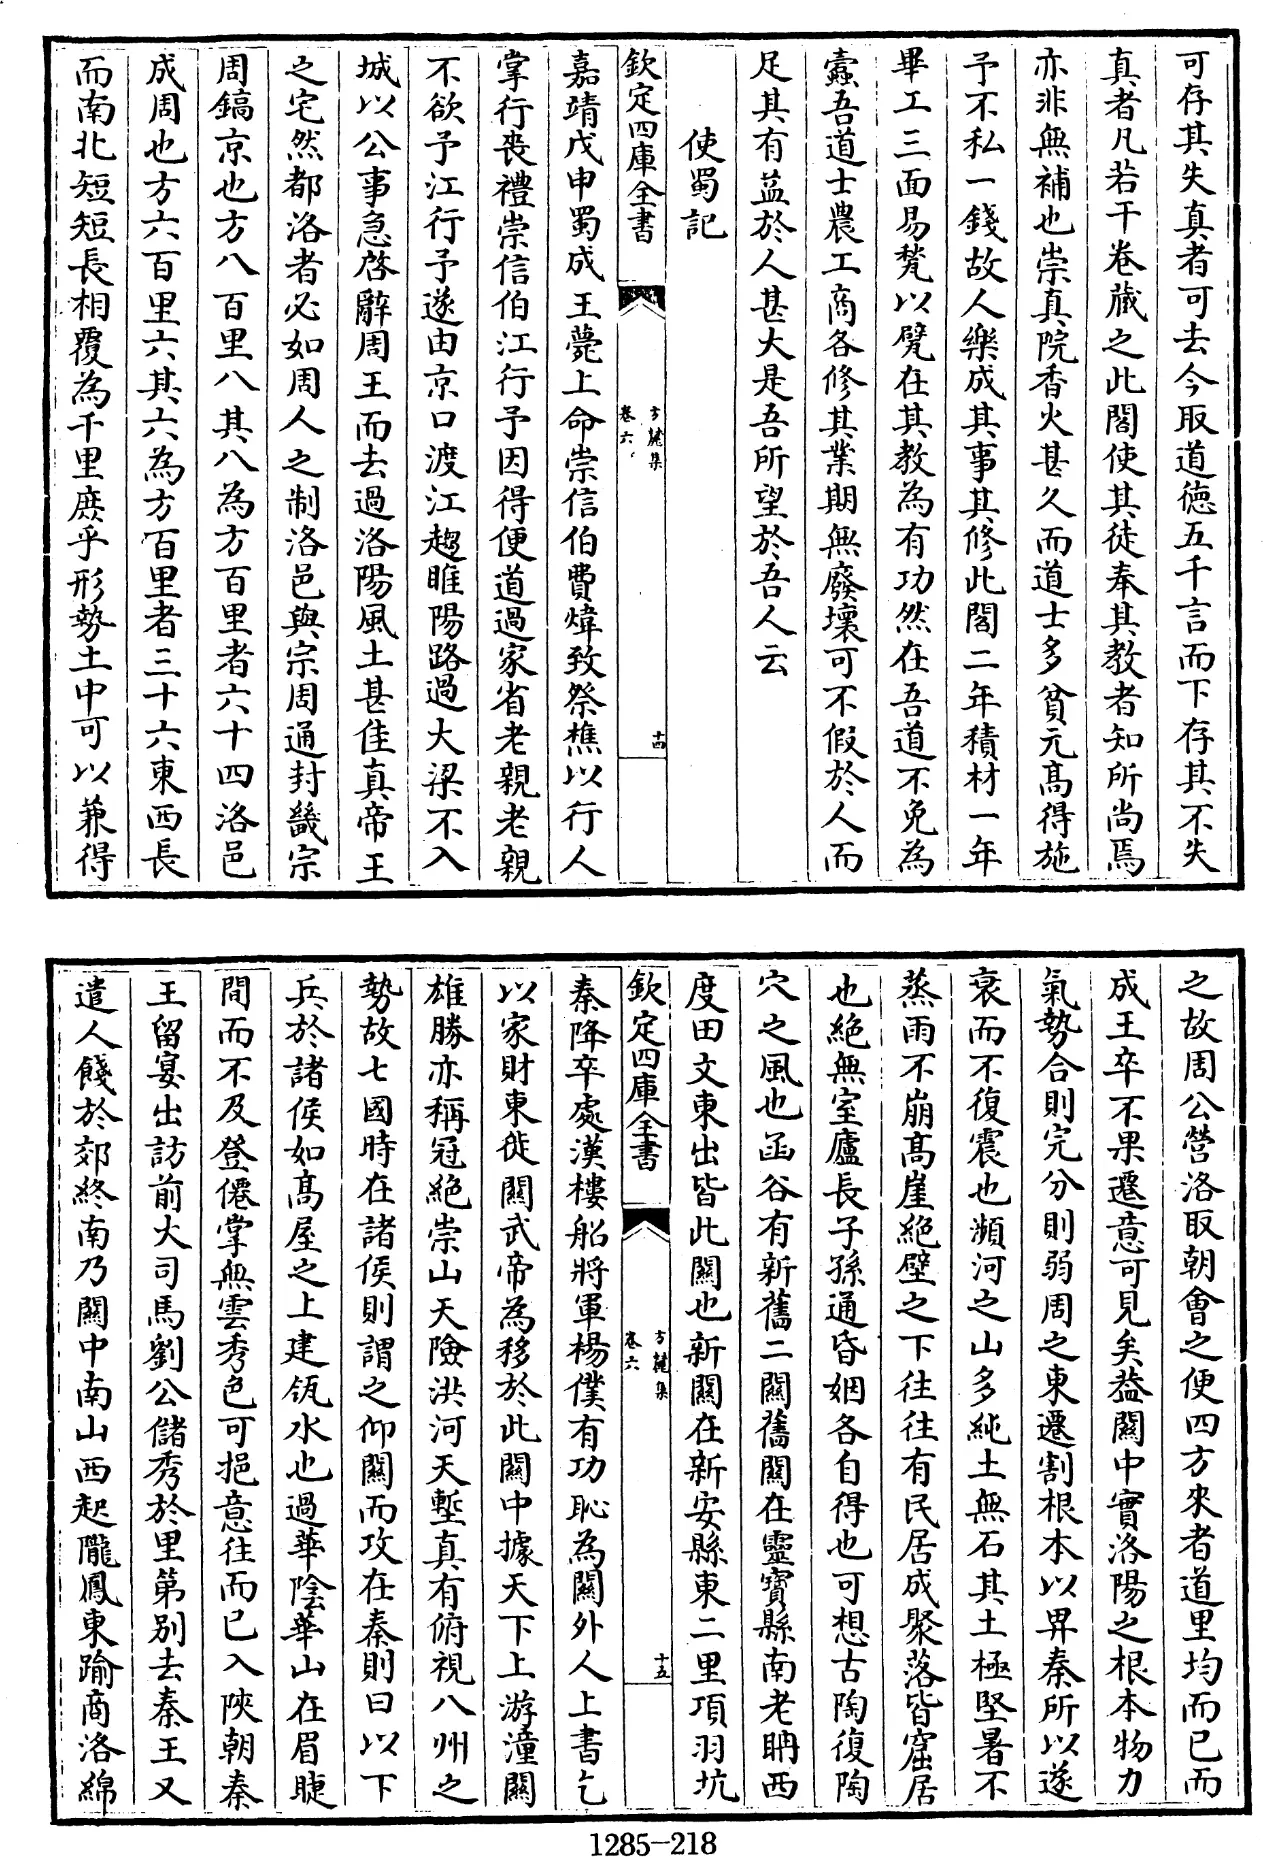 可存其失真者可去今取道德五千言而下存其不失
真者凡若干卷藏之此閣使其徒奉其教者知所尚焉
亦非無補也崇真院香火甚久而道士多貧元高得施
予不私一錢故人樂成其事其修此閣二年積材一年
畢工三面易甃以甓在其教為有功然在吾道不免為
蠹吾道士農工商各修其業期無廢壞可不假於人而
足其有益於人甚大是吾所望於吾人云
使蜀記
欽定四庫全書
方麓集
卷六
十四
嘉靖戊申蜀成王薨上命崇信伯費煒致祭樵以行人
掌行喪禮崇信伯江行予因得便道過家省老親老親
不欲予江行予遂由京口渡江趨睢陽路過大梁不入
城以公事急啓辭周王而去過洛陽風土甚佳真帝王
之宅然都洛者必如周人之制洛邑與宗周通封畿宗
周鎬京也方八百里八其八為方百里者六十四洛邑
成周也方六百里六其六為方百里者三十六東西長
而南北短短長相覆為千里庶乎形勢土中可以兼得
之故周公營洛取朝會之便四方來者道里均而已而
成王卒不果遷意可見矣葢關中實洛陽之根本物力
氣勢合則完分則弱周之東遷割根本以畀秦所以遂
衰而不復震也瀕河之山多純土無石其土極堅暑不
蒸雨不崩高崖絶壁之下往往有民居成聚落皆窟居
也絶無室廬長子孫通昏姻各自得也可想古陶復陶
穴之風也函谷有新舊二關舊關在靈寶縣南老聃西
度田文東出皆此關也新關在新安縣東二里項羽坑
欽定四庫全書
方麓集
卷六
十五
秦降卒處漢樓船將軍楊僕有功恥為關外人上書乞
以家財東徙關武帝為移於此關中據天下上游潼關
雄勝亦稱冠絶崇山天險洪河天塹真有俯視八州之
勢故七國時在諸侯則謂之仰關而攻在秦則曰以下
兵於諸侯如高屋之上建瓴水也過華陰華山在眉睫
間而不及登僊掌無雲秀色可挹意往而已入陜朝秦
王留宴出訪前大司馬劉公儲秀於里第别去秦王又
遣人餞於郊終南乃關中南山西起隴鳳東踰商洛綿
1285-218